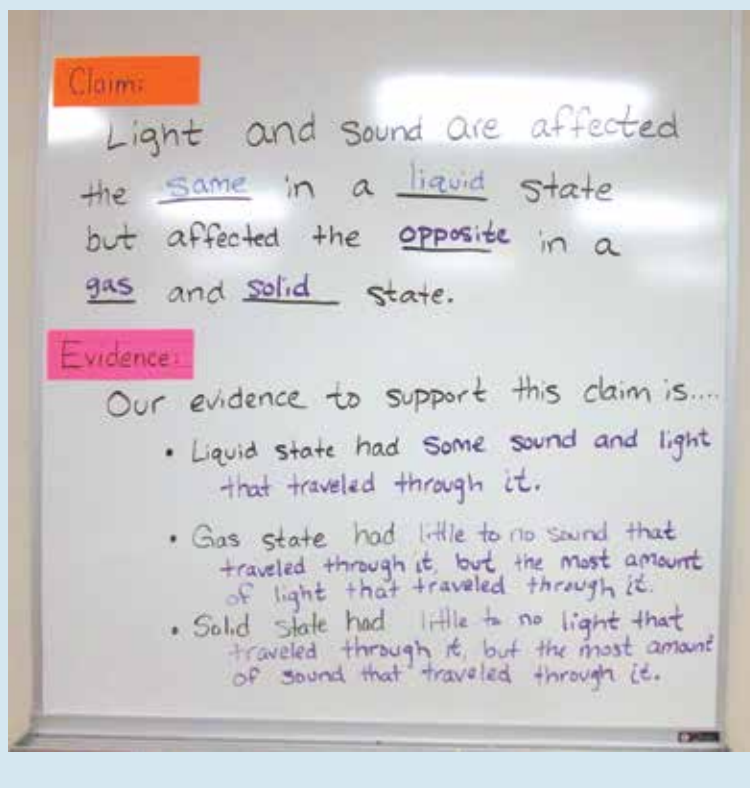 Claim:
Light and sound are affected
the same in a liquid state
but affected the opposite in a
gas and solid state.
Evidence:
Our evidence to support this claim is....
• Liquid state had some sound and light
that traveled through it.
• Gas state had little to no sound that
traveled through it, but the most amount
of light that traveled through it.
• Solid state had little to no light that
traveled through it, but the most amount
of sound that traveled through it.